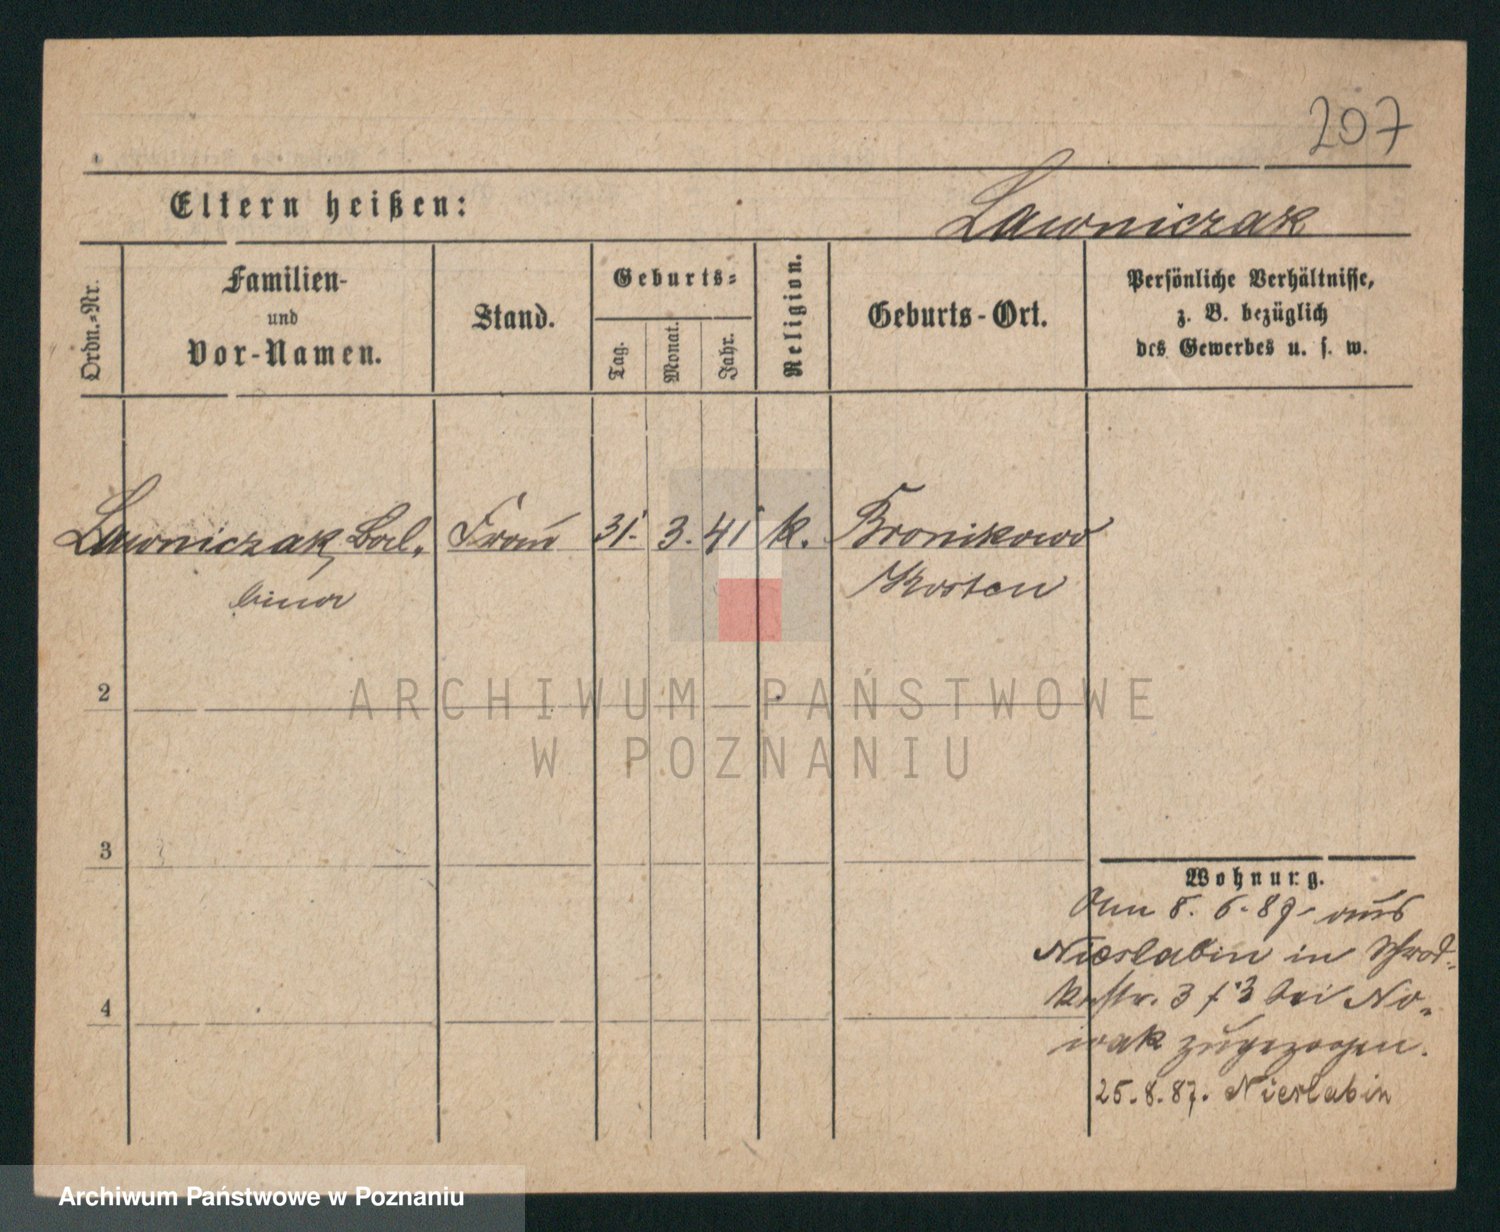 207
Eltern heißen:
Lawniczak
Ordn.-Nr.
Familien-
und
Vor-Namen.
Stand.
Geburts-
Tag.
Monat.
Jahr.
Religion.
Geburts-Ort.
Persönliche Verhältnisse,
z. B. bezüglich
des Gewerbes u. s. w.
Lawniczak, Bal-
bina
Frau
31. 3. 41
k.
Bronikowo
Kosten
2
3
4
Wohnung.
8. 6. 87 aus
Nieslabin in Schrod-
k. str. 3 bei No-
wak zugezogen.
25.8.87. Nieslabin
ARCHIWUM PAŃSTWOWE
W POZNANIU
Archiwum Państwowe w Poznaniu